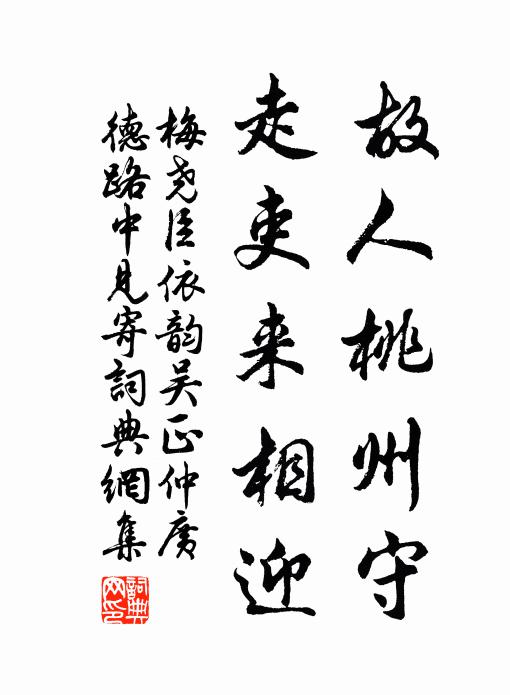 故人桃州守
走吏来相迎
梅尧臣依韵吴正仲廣
德路中見寄詞典網集
詞典网印